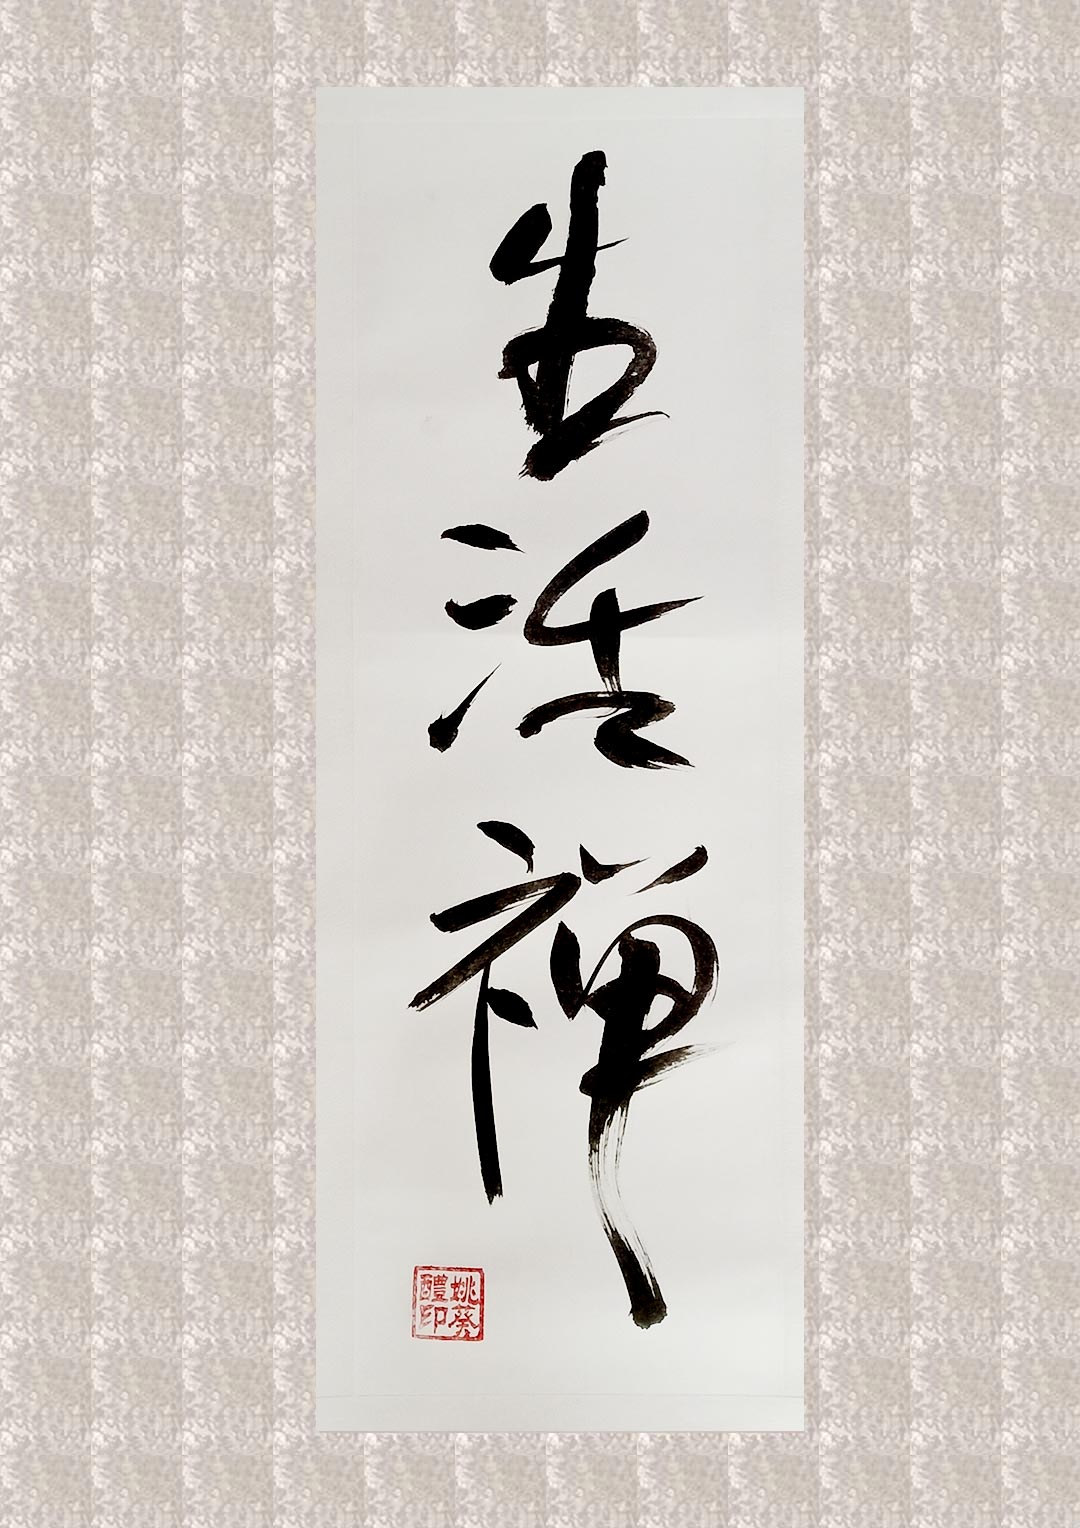 生活禅
姚葵醴印